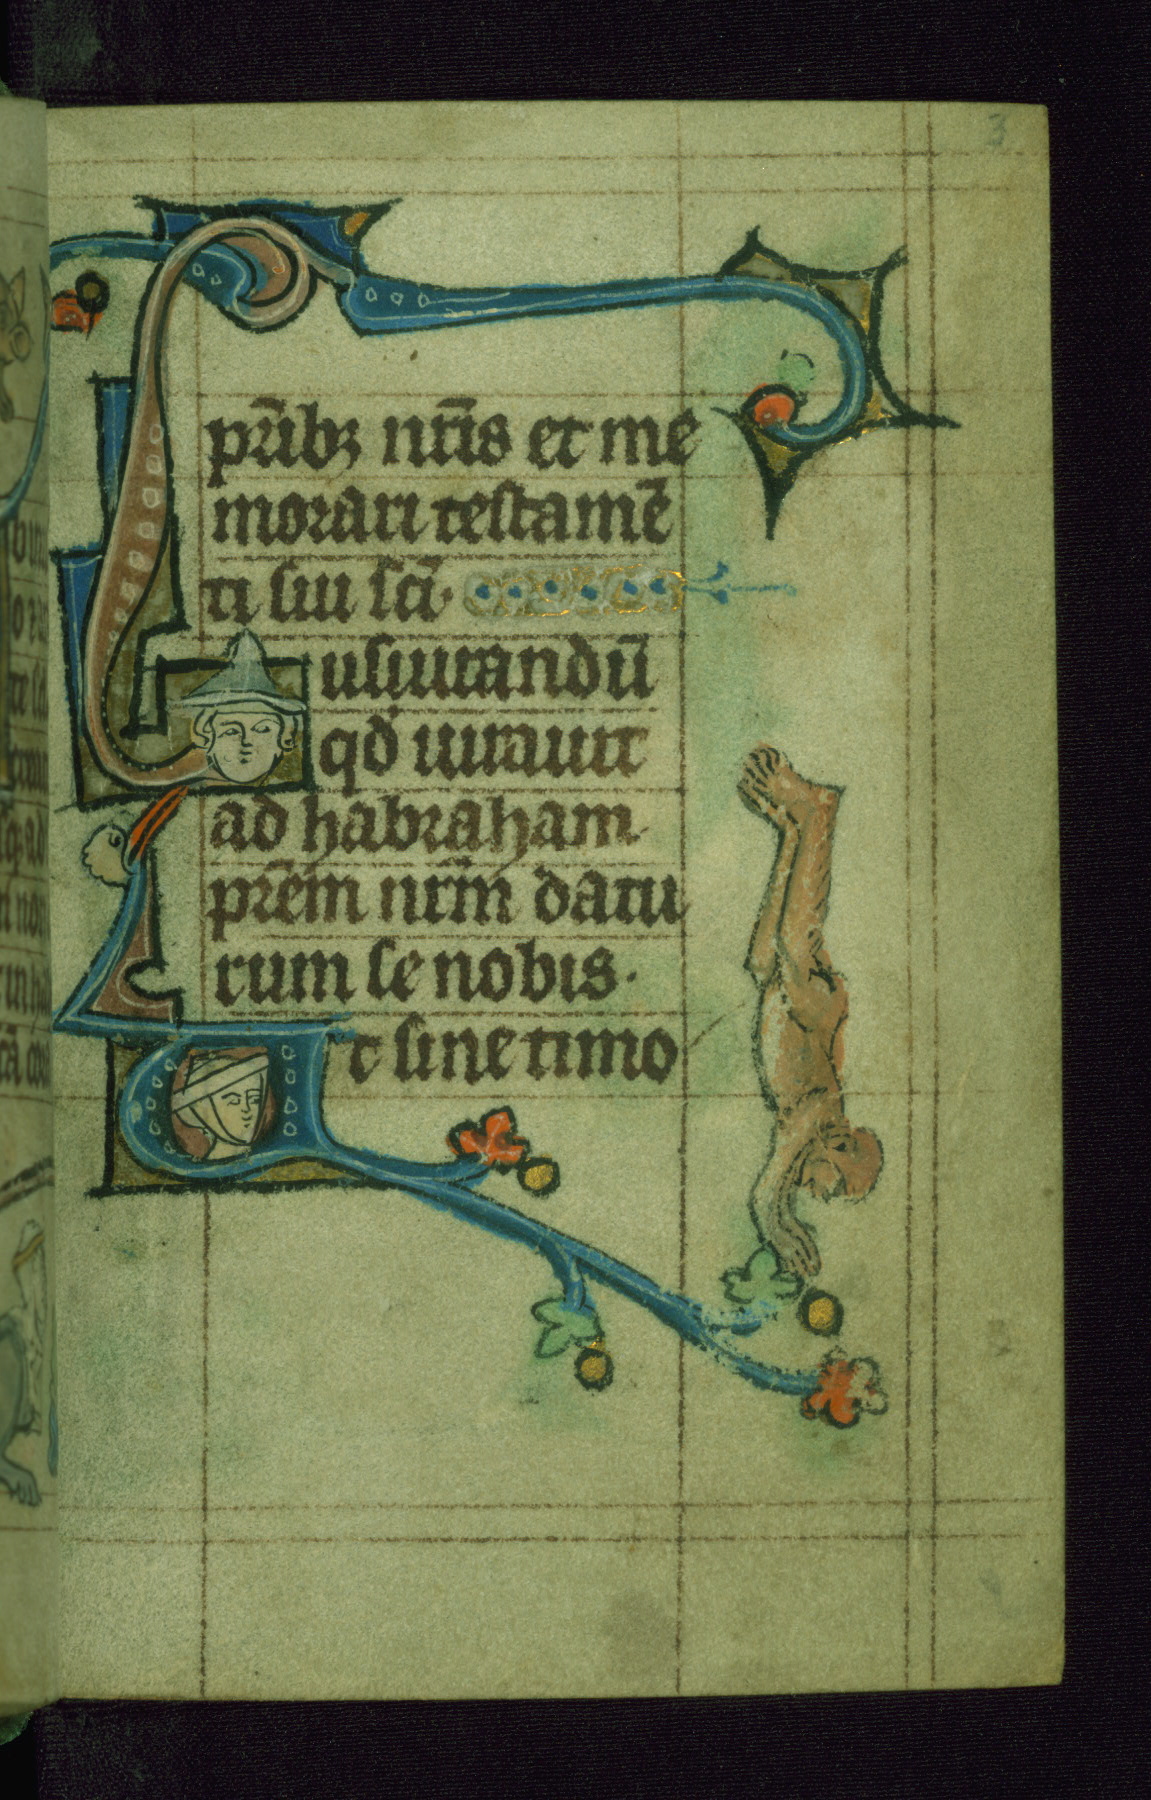 3
pr̄ibꝫ nr̄is et me
morari testamē
ti sui sc̄i.
Iusiurandū
qd̓ iurauit
ad habraham
pr̄em nr̄m datu
rum se nobis.
Ut sine timo